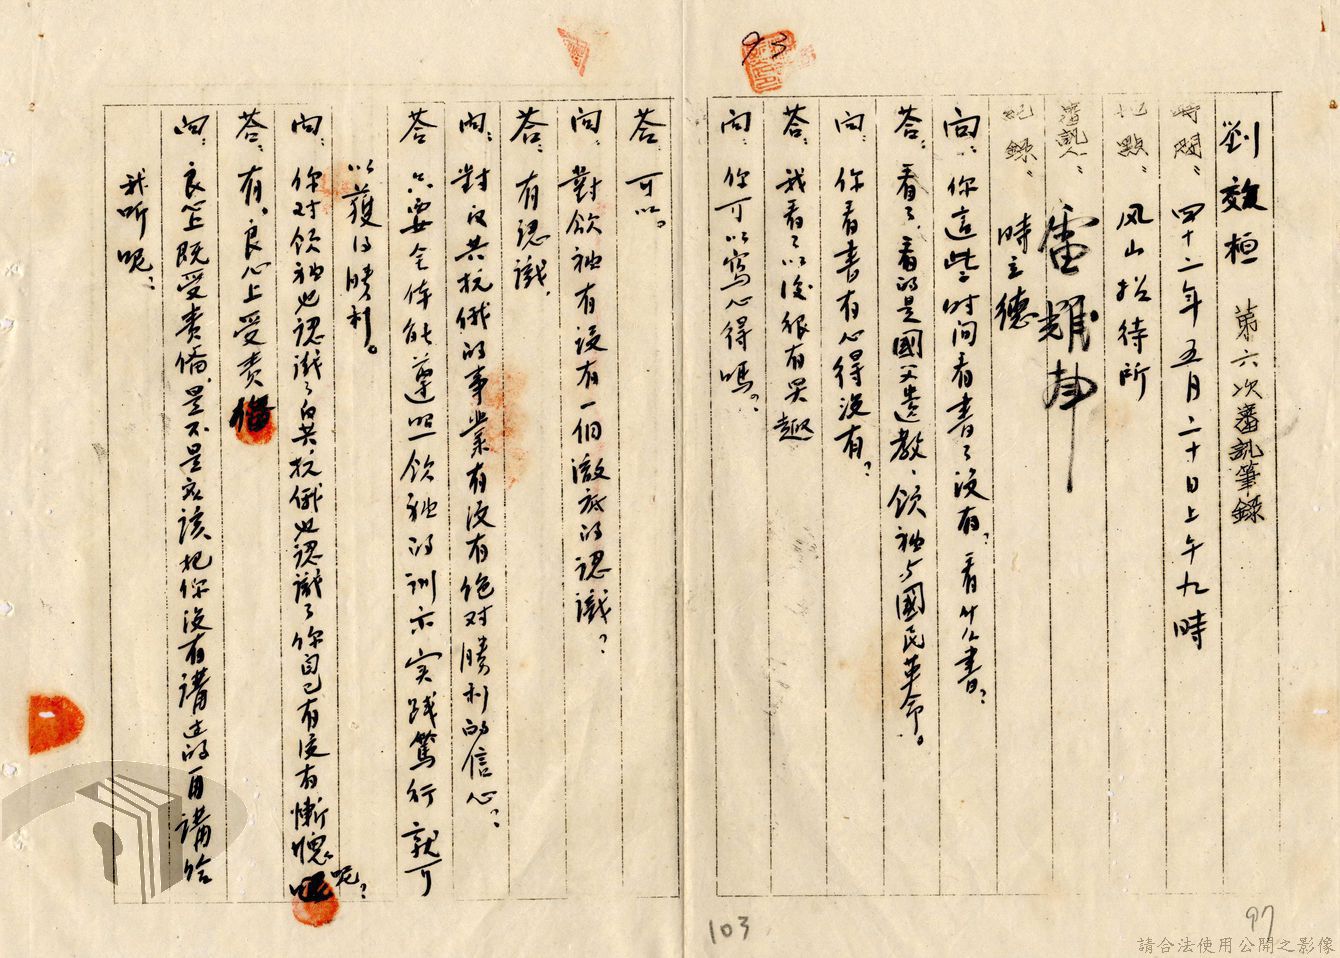 93
劉效桓 第六次審訊筆錄
時間：四十二年五月二十日上午九時
地點：风山招待所
審訊人：雷耀
紀錄：時立德
向：你這些时间看書了沒有，看什么書？
答：看了，看的是國父遺教、领袖与國民革命。
向：你看書有心得沒有？
答：我看了以後很有兴趣
向：你可以寫心得嗎？
答：可以。
向：對领袖有没有一個澈底的認識？
答：有認識，
向：對反共抗俄的事業有没有绝对勝利的信心？
答 只要全体能遵照领袖的训示实践篤行就可
以獲得勝利。
向：你对领袖也認識了反共抗俄也認識了你自己有没有惭愧呢？
答：有，良心上受责備
向：良心上既受责備，是不是应该把你没有講过的再講给
我听呢？
103
97
請合法使用公開之影像